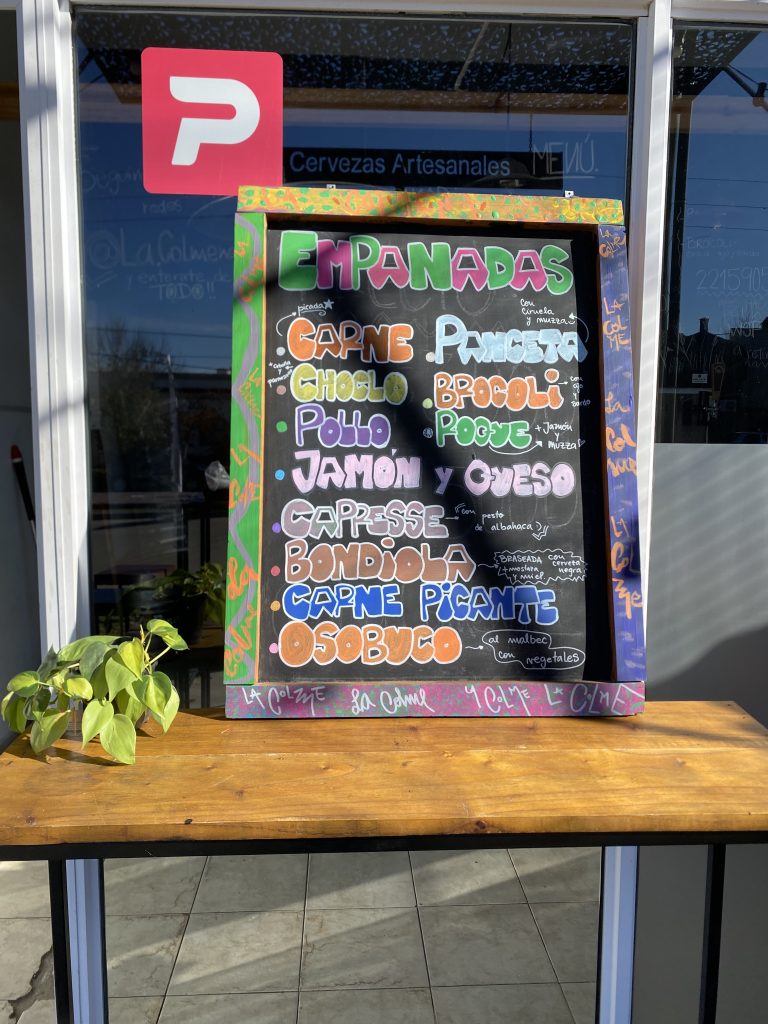 P
Cervezas Artesanales
MENÚ.
redes
@LaColmena
y enterate de
TODO!!
EMPANADAS
picada
CARNE
con
ciruela
y muzza
PANCETA
CHOCLO
BROCOLI
con
POLLO
ROQUE
+ Jamón
y
muzza
JAMÓN y QUESO
CAPRESSE
con pesto
de albahaca
BONDIOLA
BRASEADA con cerveza negra
+ mostaza
y miel
CARNE PICANTE
OSOBUCO
al malbec
con vegetales
LA COLME La Colme LA COLME LA COLME
LA COLME
LA COLME
La Colme
LA COLME
2215905